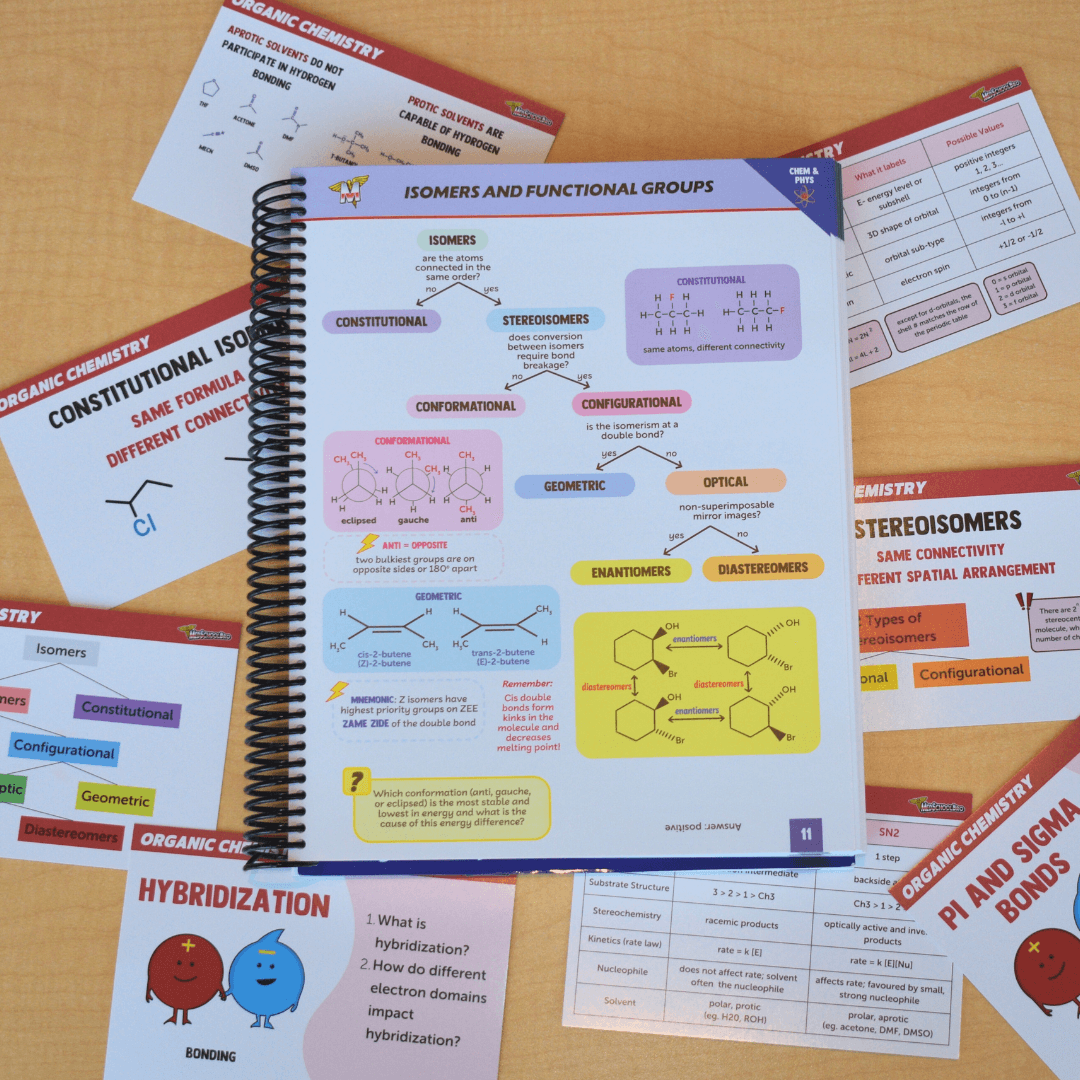 ORGANIC CHEMISTRY
APROTIC SOLVENTS DO NOT
PARTICIPATE IN HYDROGEN
BONDING
THF
ACETONE
DMF
MECN
DMSO
PROTIC SOLVENTS ARE
CAPABLE OF HYDROGEN
BONDING
MedSchoolBro
What it labels
Possible Values
E- energy level or
subshell
positive integers
1, 2, 3...
3D shape of orbital
integers from
0 to (n-1)
orbital sub-type
integers from
-l to +l
electron spin
+1/2 or -1/2
except for d-orbitals, the
shell # matches the row of
the periodic table
0 = s orbital
1 = p orbital
2 = d orbital
3 = f orbital
ORGANIC CHEMISTRY
CONSTITUTIONAL ISO
SAME FORMULA
DIFFERENT CONNECT
Cl
M
ISOMERS AND FUNCTIONAL GROUPS
CHEM &
PHYS
ISOMERS
are the atoms
connected in the
same order?
no yes
CONSTITUTIONAL
STEREOISOMERS
does conversion
between isomers
require bond
breakage?
no yes
CONFORMATIONAL
CONFIGURATIONAL
is the isomerism at a
double bond?
yes no
GEOMETRIC
OPTICAL
non-superimposable
mirror images?
yes no
ENANTIOMERS
DIASTEREOMERS
CONSTITUTIONAL
H F H
H-C-C-C-H
H H H
H H H
H-C-C-C-F
H H H
same atoms, different connectivity
CONFORMATIONAL
CH₃ CH₃ CH₃ CH₃ CH₃
H H H H H H H
CH₃
eclipsed gauche anti
ANTI = OPPOSITE
two bulkiest groups are on
opposite sides or 180° apart
GEOMETRIC
H H H CH₃
H₃C CH₃ H₃C H
cis-2-butene
(Z)-2-butene
trans-2-butene
(E)-2-butene
MNEMONIC: Z isomers have
highest priority groups on ZEE
ZAME ZIDE of the double bond
Remember:
Cis double
bonds form
kinks in the
molecule and
decreases
melting point!
OH enantiomers OH
Br Br
diastereomers diastereomers
OH enantiomers OH
Br Br
?
Which conformation (anti, gauche,
or eclipsed) is the most stable and
lowest in energy and what is the
cause of this energy difference?
Answer: positive
11
EMISTRY
STEREOISOMERS
SAME CONNECTIVITY
FERENT SPATIAL ARRANGEMENT
Types of
ereoisomers
onal
Configurational
!!
There are 2
stereocent
molecule, wh
number of ch
STRY
MedSchoolBro
Isomers
mers
Constitutional
Configurational
ptic
Geometric
Diastereomers
ORGANIC CHE
HYBRIDIZATION
+
-
BONDING
1. What is
hybridization?
2. How do different
electron domains
impact
hybridization?
MedSchoolBro
SN2
1 step
intermediate
backside a
Substrate Structure
3 > 2 > 1 > Ch3
Ch3 > 1 > 2
Stereochemistry
racemic products
optically active and inve
products
Kinetics (rate law)
rate = k [E]
rate = k [E][Nu]
Nucleophile
does not affect rate; solvent
often the nucleophile
affects rate; favoured by small,
strong nucleophile
Solvent
polar, protic
(eg. H2O, ROH)
prolar, aprotic
(eg. acetone, DMF, DMSO)
ORGANIC CHEMISTRY
PI AND SIGMA
BONDS
+